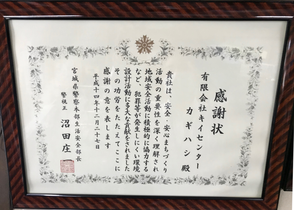 感謝状
有限会社キイセンター
カギハシ 殿
貴社は、安全・安心まちづくり
活動の重要性を深く理解され
地域安全活動に積極的に協力する
など、犯罪等が発生しにくい環境
設計活動に多大な貢献をされました
その功労をたたえてここに
感謝の意を表します
平成十四年十二月二十七日
宮城県警察本部生活安全部長
警視正 沼田庄